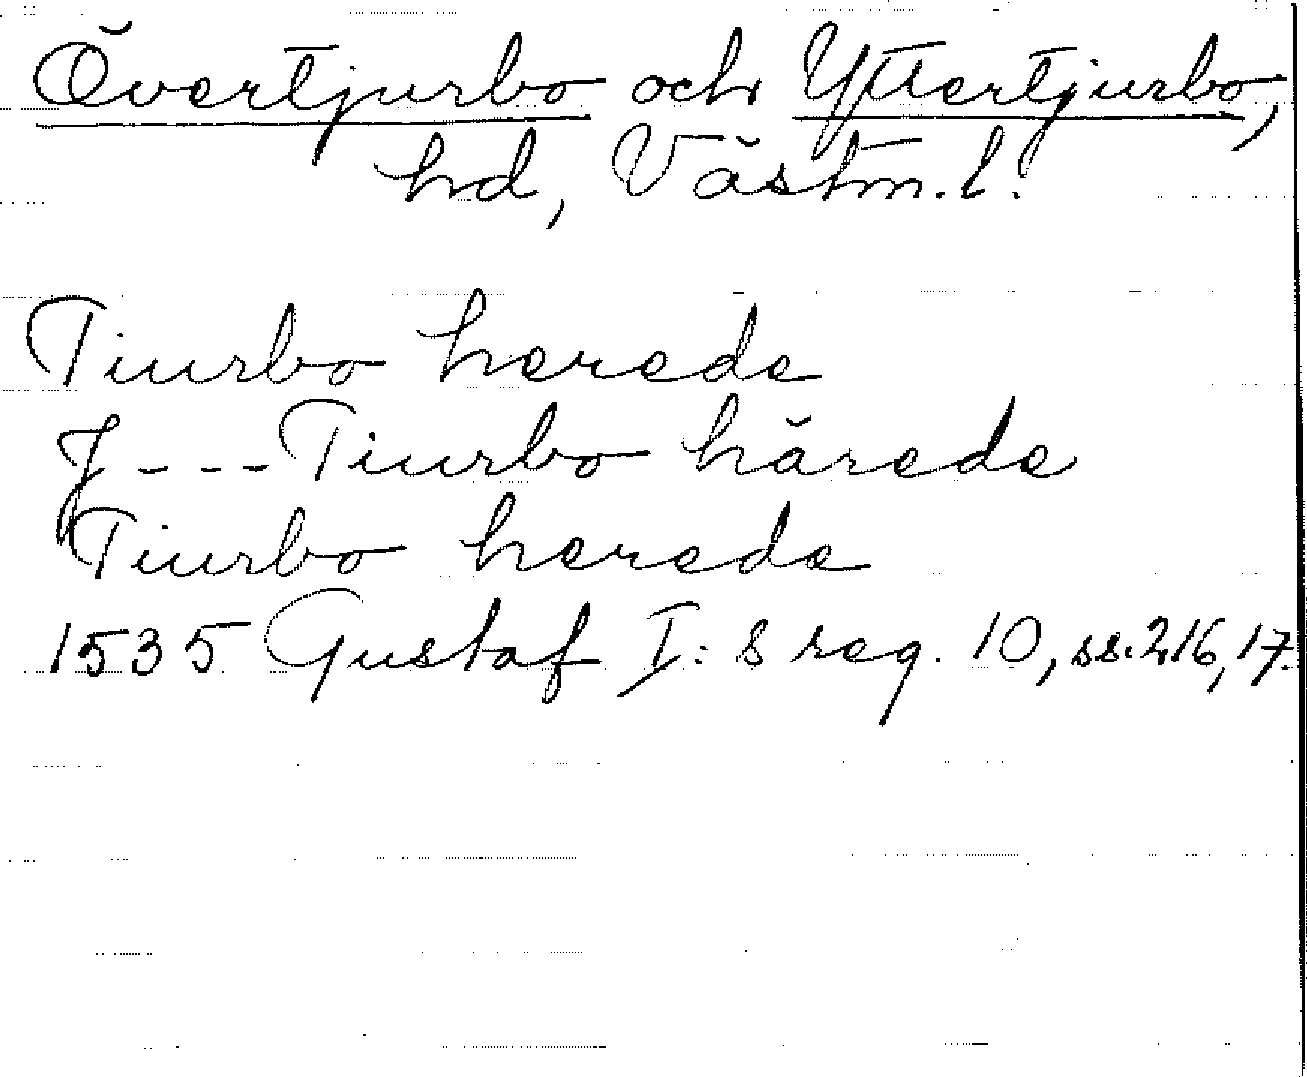 Övertjurbo och Yttertjurbo,
hd, Västm. l.
Tiurbo herede
J --- Tiurbo härede
Tiurbo herede
1535 Gustaf I:s reg. 10, ss. 216, 17.